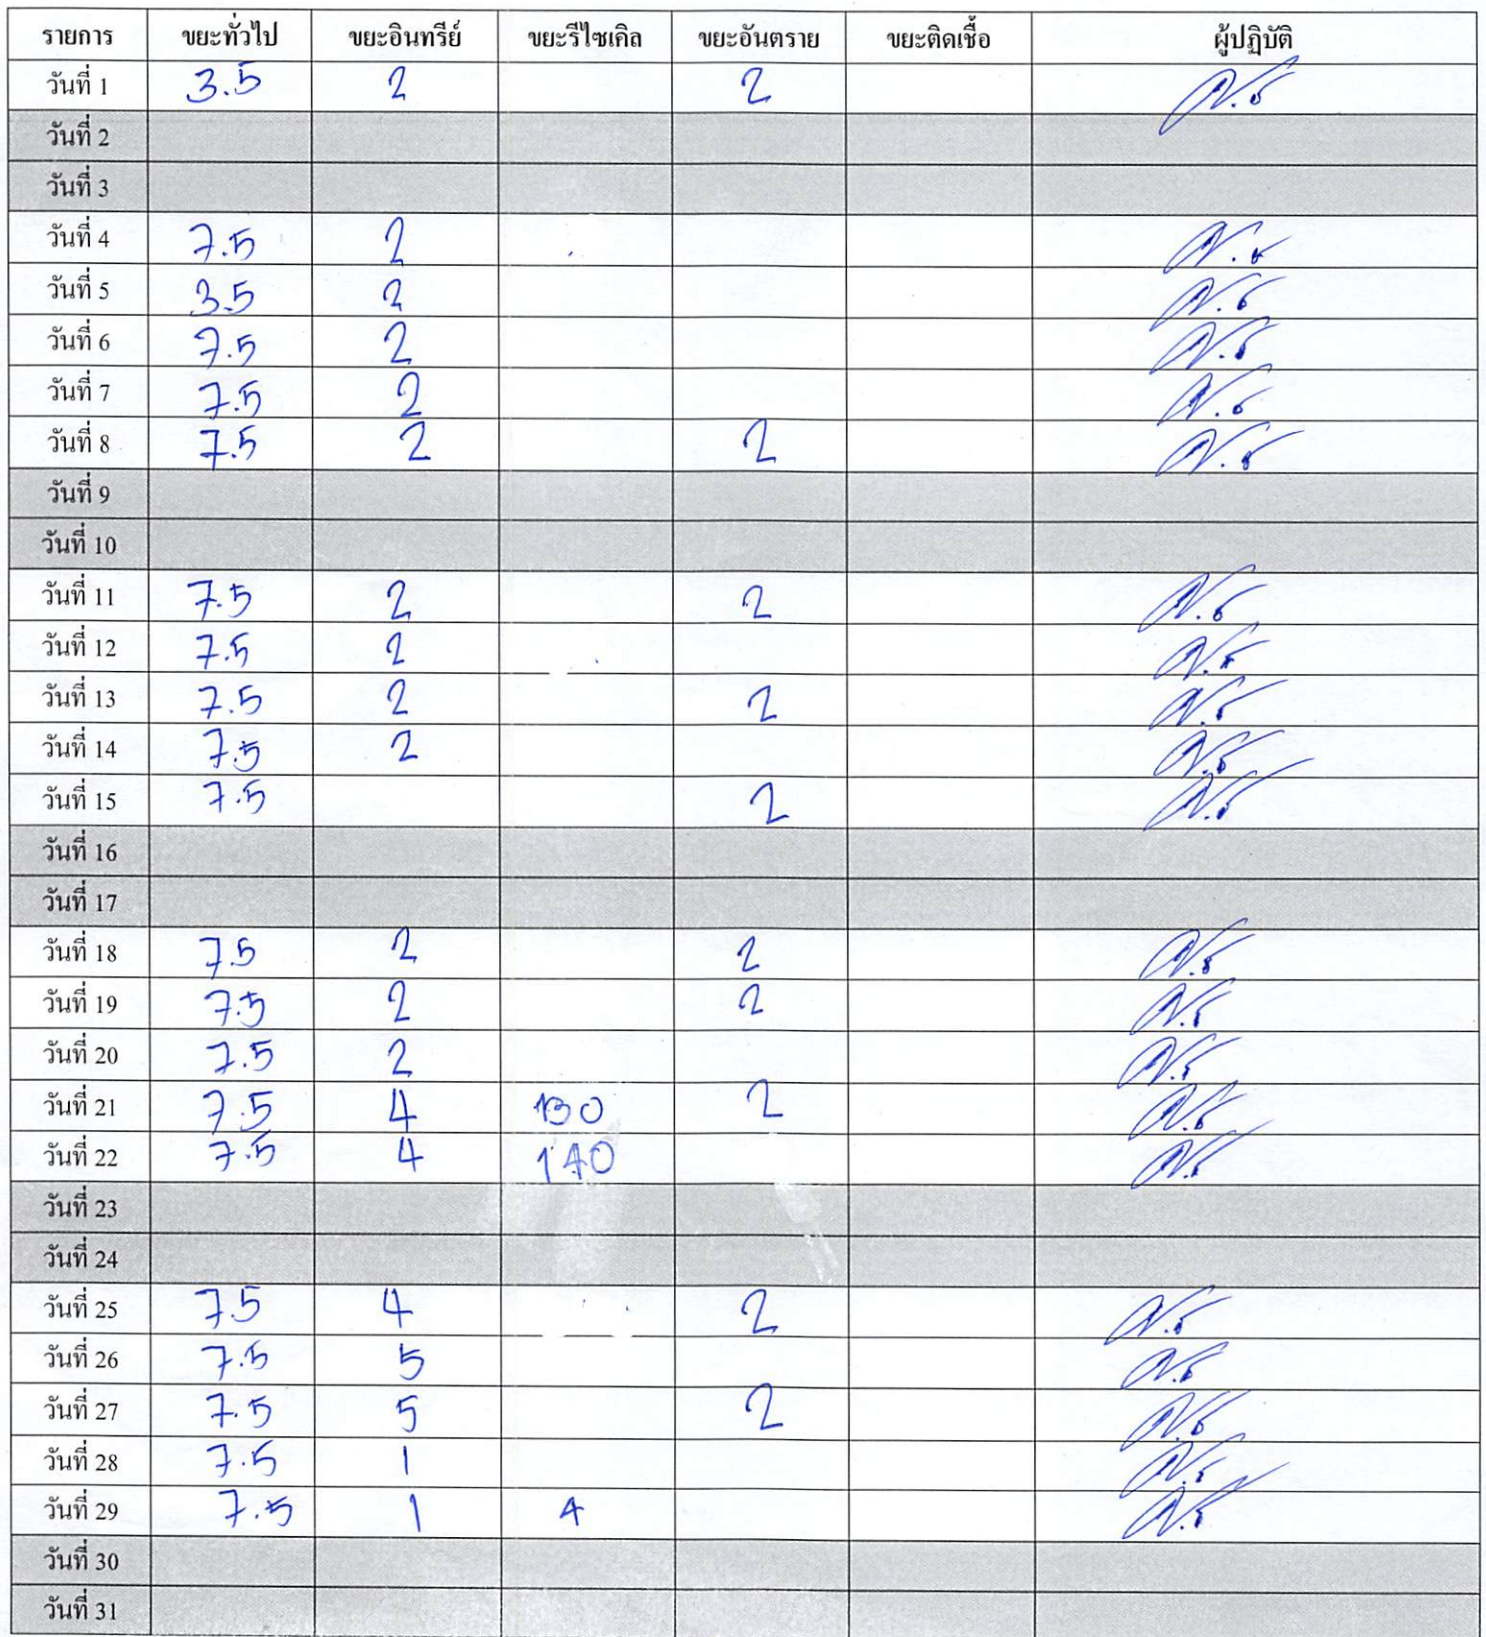 รายการ ขยะทั่วไป ขยะอินทรีย์ ขยะรีไซเคิล ขยะอันตราย ขยะติดเชื้อ ผู้ปฏิบัติ
วันที่ 1 3.5 2 2
วันที่ 2
วันที่ 3
วันที่ 4 7.5 2
วันที่ 5 3.5 2
วันที่ 6 7.5 2
วันที่ 7 7.5 2
วันที่ 8 7.5 2 2
วันที่ 9
วันที่ 10
วันที่ 11 7.5 2 2
วันที่ 12 7.5 2
วันที่ 13 7.5 2 2
วันที่ 14 7.5 2
วันที่ 15 7.5 2
วันที่ 16
วันที่ 17
วันที่ 18 7.5 2 2
วันที่ 19 7.5 2 2
วันที่ 20 7.5 2
วันที่ 21 7.5 4 130 2
วันที่ 22 7.5 4 140
วันที่ 23
วันที่ 24
วันที่ 25 7.5 4 2
วันที่ 26 7.5 5
วันที่ 27 7.5 5 2
วันที่ 28 7.5 1
วันที่ 29 7.5 1 4
วันที่ 30
วันที่ 31